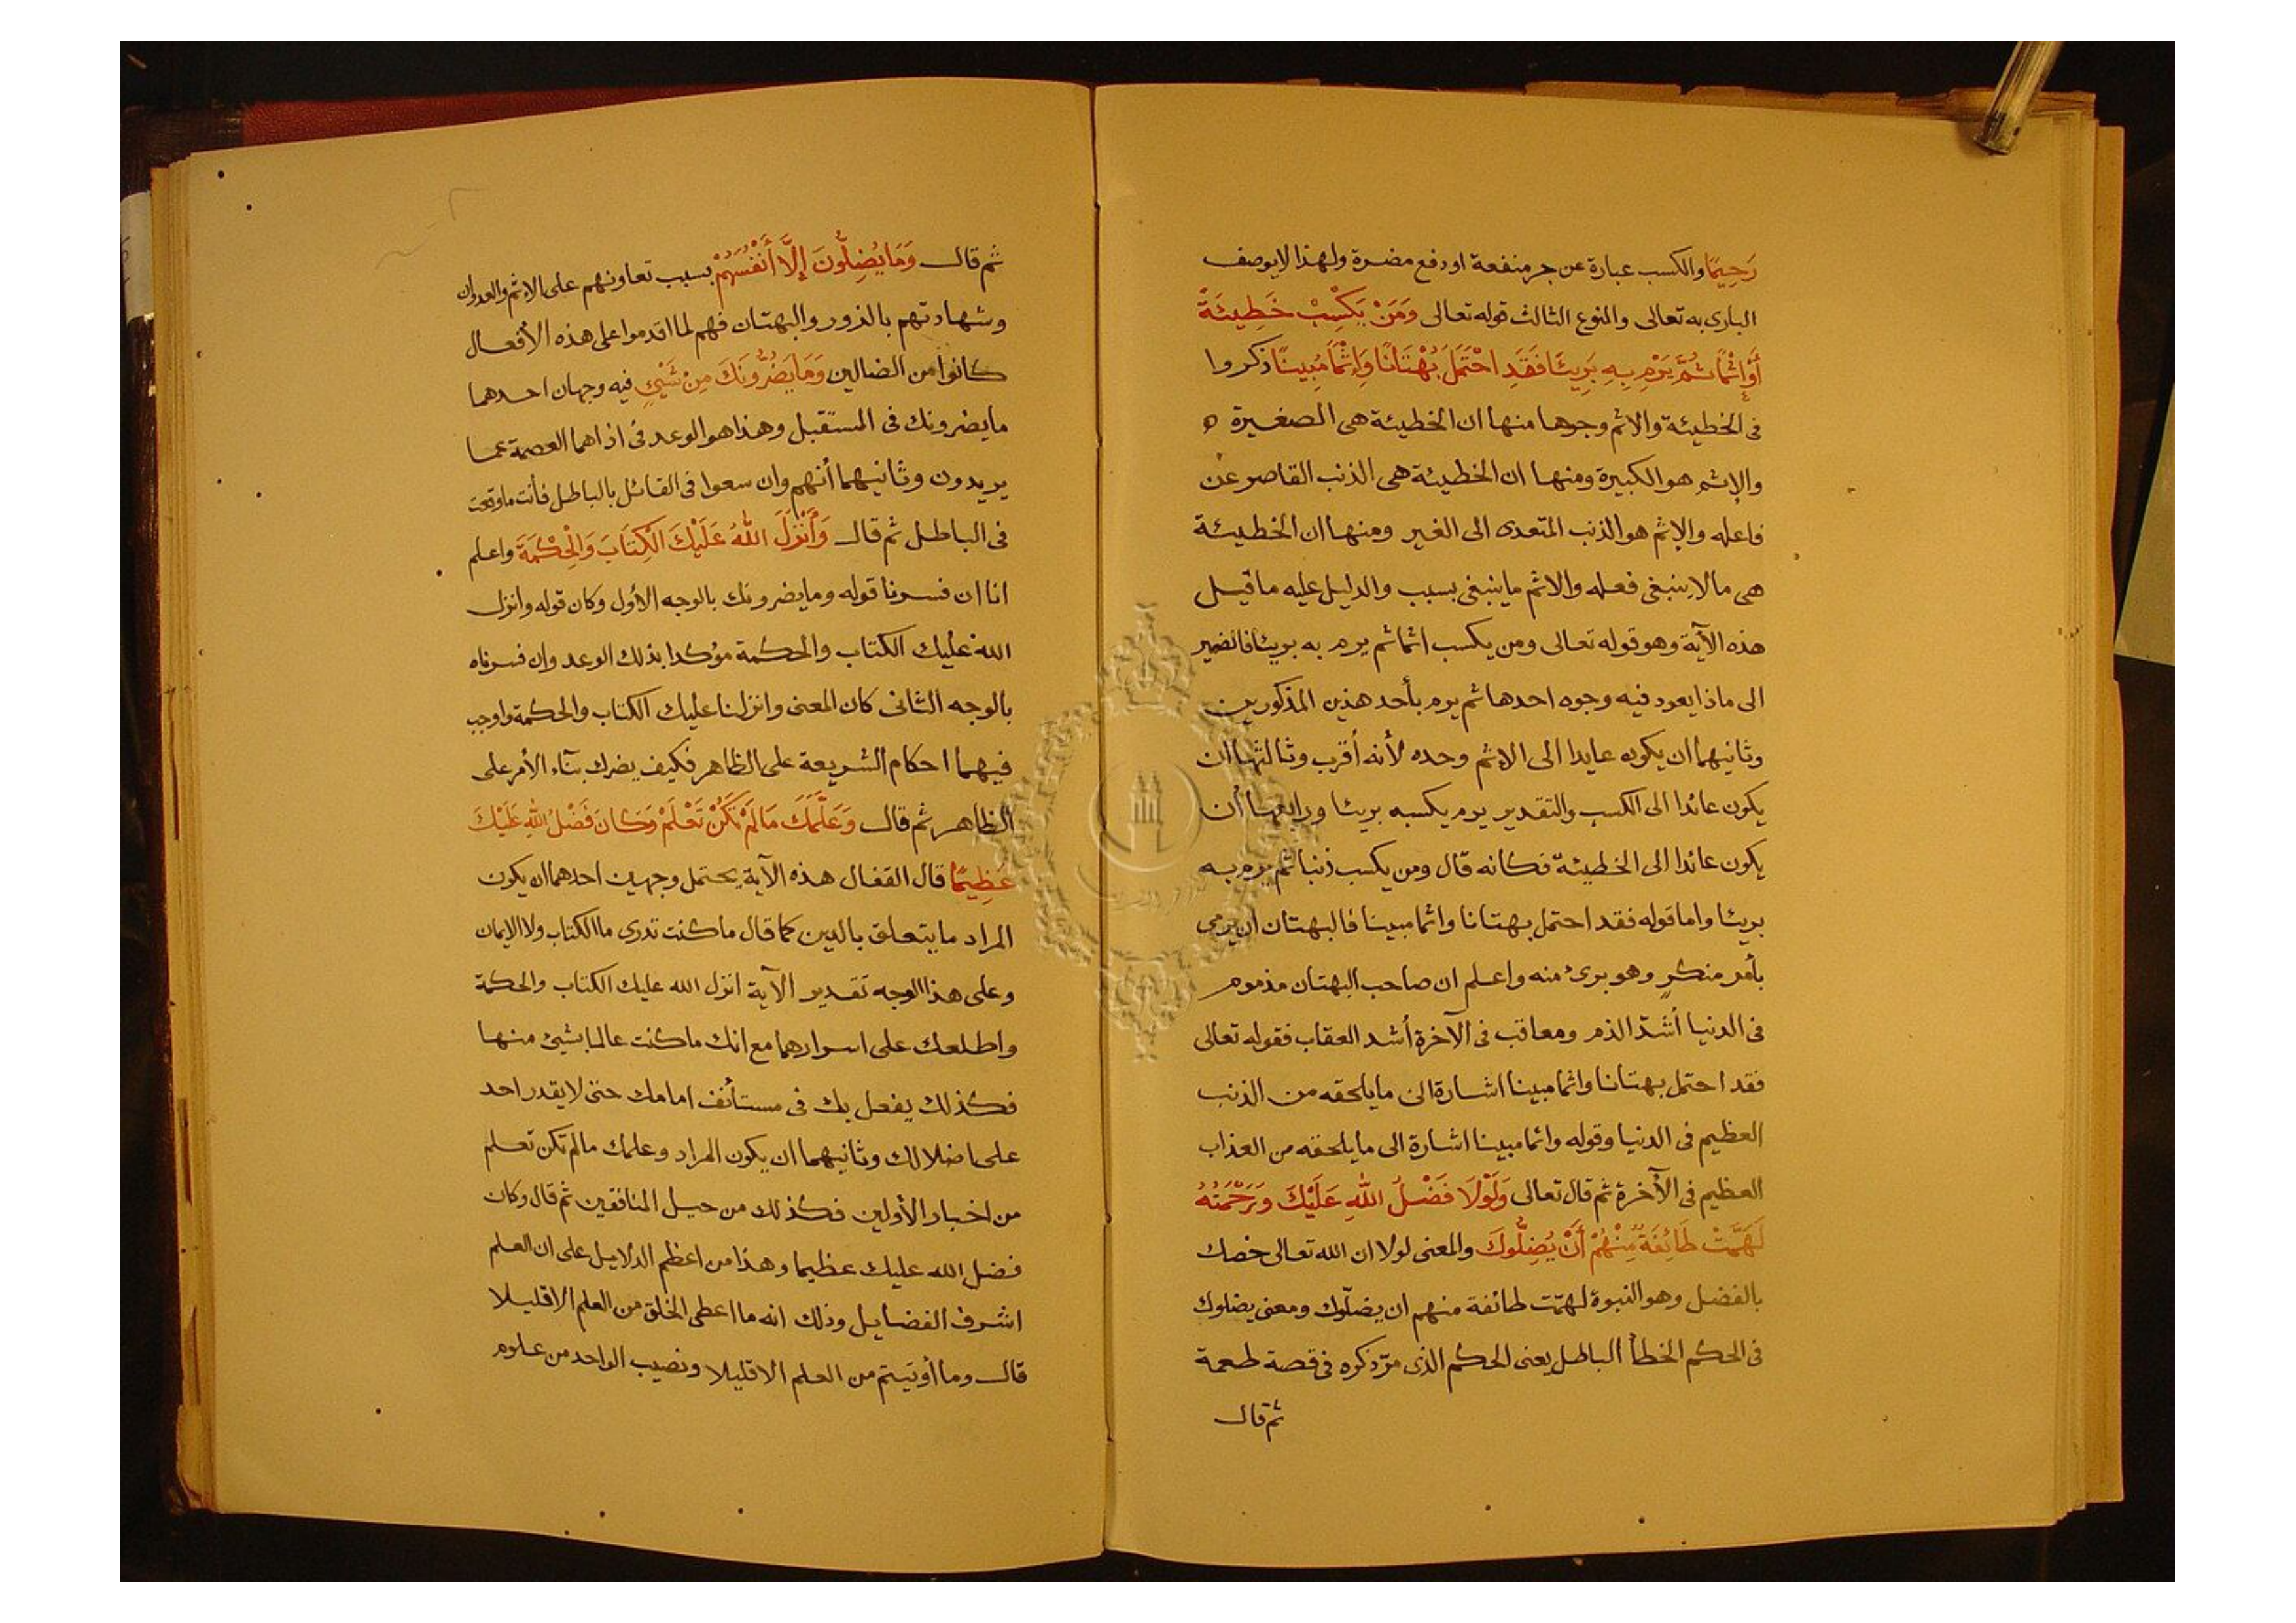 رَحِيمًا والكسب عبارة عن جر منفعة او دفع مضرة ولهذا لايوصف
البارى به تعالى والنوع الثالث قوله تعالى وَمَنْ يَكْسِبْ خَطِيئَةً
أَوْ إِثْمًا ثُمَّ يَرْمِ بِهِ بَرِيئًا فَقَدِ احْتَمَلَ بُهْتَانًا وَإِثْمًا مُبِينًا ذكروا
فى الخطيئة والاثم وجوها منها ان الخطيئة هى الصغيرة
والإثم هو الكبيرة ومنها ان الخطيئة هى الذنب القاصر عن
فاعله والإثم هو الذنب المتعدى الى الغير ومنها ان الخطيئة
هى مالاينبغى فعله والاثم ماينبغى بسبب والدليل عليه ماقيل
هذه الآية وهو قوله تعالى ومن يكسب اثما ثم يرم به بريئا فالضمير
الى ماذا يعود فيه وجوه احدها ثم يرم بأحد هذين المذكورين
وثانيهما ان يكون عايدا الى الاثم وحده لأنه أقرب وثالثها ان
يكون عائدا الى الكسب والتقدير يرم بكسبه بريئا ورابعها أن
يكون عائدا الى الخطيئة فكانه قال ومن يكسب ذنبا ثم يرم به
بريئا واما قوله فقد احتمل بهتانا واثما مبينا فالبهتان ان يرمى
بأمر منكر وهو برئ منه واعلم ان صاحب البهتان مذموم
فى الدنيا أشدّ الذم ومعاقب فى الآخرة أشد العقاب فقوله تعالى
فقد احتمل بهتانا واثما مبينا اشارة الى مايلحقه من الذنب
العظيم فى الدنيا وقوله واثما مبينا اشارة الى مايلحقه من العذاب
العظيم فى الآخرة ثم قال تعالى وَلَوْلَا فَضْلُ اللهِ عَلَيْكَ وَرَحْمَتُهُ
لَهَمَّتْ طَائِفَةٌ مِنْهُمْ أَنْ يُضِلُّوكَ والمعنى لولا ان الله تعالى خصك
بالفضل وهو النبوة لهمّت طائفة منهم ان يضلّوك ومعنى يضلوك
فى الحكم الخطأ الباطل يعنى الحكم الذى مرّ ذكره فى قصة طعمة
ثم قال
ثم قال وَمَا يُضِلُّونَ إِلَّا أَنْفُسَهُمْ بسبب تعاونهم على الاثم والعدوان
وشهادتهم بالزور والبهتان فهم لما اقدموا على هذه الأفعال
كانوا من الضالين وَمَا يَضُرُّونَكَ مِنْ شَيْئٍ فيه وجهان احدهما
مايضرونك فى المستقبل وهذا هو الوعد فى العصمة عما
يريدون وثانيهما أنهم وان سعوا فى القائل بالباطل فأنت ماوقعت
فى الباطل ثم قال وَأَنْزَلَ اللهُ عَلَيْكَ الْكِتَابَ وَالْحِكْمَةَ واعلم
انا ان فسرنا قوله ومايضرونك بالوجه الأول وكان قوله وانزل
الله عليك الكتاب والحكمة مؤكدا بذلك الوعد وان فسرناه
بالوجه الثانى كان المعنى وانزلنا عليك الكتاب والحكمة واوجب
فيهما احكام الشريعة على الظاهر فكيف يضرك بنآء الأمر على
الظاهر ثم قال وَعَلَّمَكَ مَالَمْ تَكُنْ تَعْلَمُ وَكَانَ فَضْلُ اللهِ عَلَيْكَ
عَظِيمًا قال القفال هذه الآية يحتمل وجهين احدهما ان يكون
المراد مايتعلق بالدين كما قال ماكنت تدرى ما الكتاب ولا الايمان
وعلى هذا الوجه تقدير الآية انزل الله عليك الكتاب والحكمة
واطلعك على اسرارهما مع انك ماكنت عالما بشيئ منها
فكذلك يفعل بك فى مستأنف امامك حتى لايقدر احد
على اضلالك وثانيهما ان يكون المراد وعلمك مالم تكن تعلم
من اخبار الأولين فكذلك من حيل المنافقين ثم قال وكان
فضل الله عليك عظيما وهذا من اعظم الدلايل على ان العلم
اشرف الفضايل وذلك انه ما اعطى الخلق من العلم الاقليلا
قال وما أوتيتم من العلم الاقليلا ونصيب الواحد من علوم